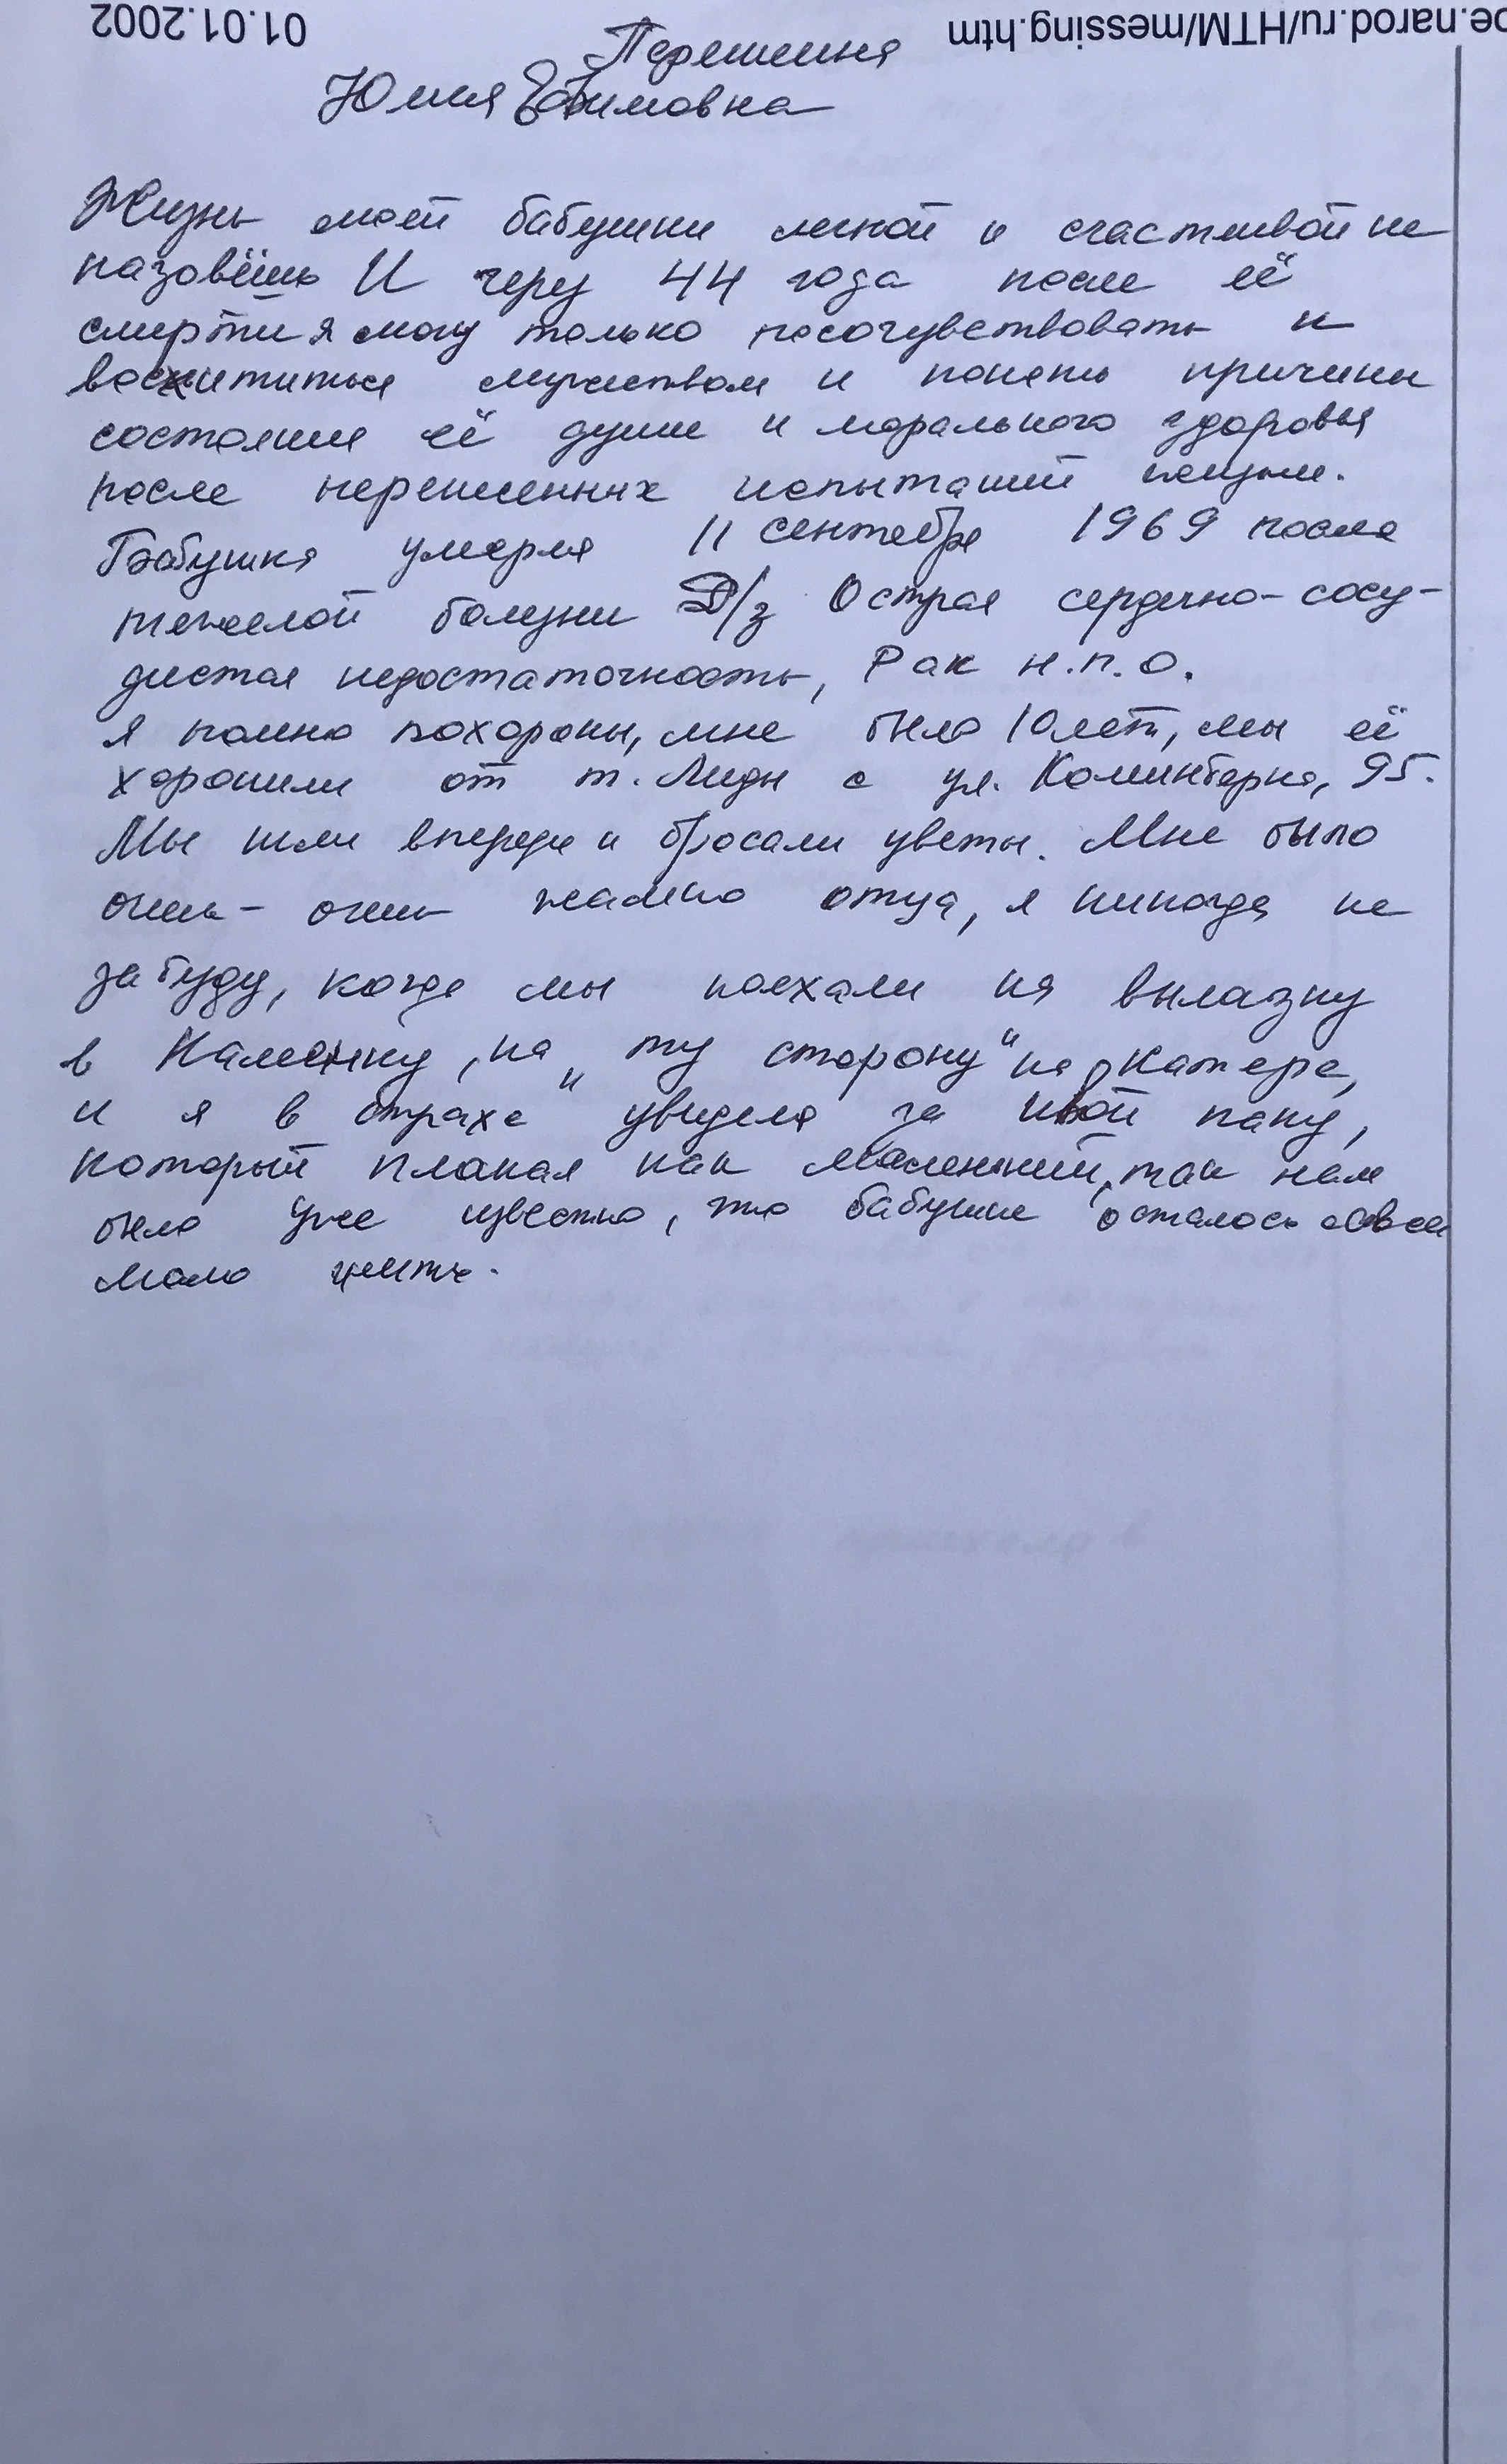 01.01.2002
pe.narod.ru/HTM/messing.htm
Юлия Ефимовна
Жизнь моей бабушки легкой и счастливой не
назовёшь И через 44 года после её
смерти я могу только посочувствовать и
восхититься мужеством и понять причины
состояния её души и морального здоровья
после перенесенных испытаний
Бабушка умерла 11 сентября 1969 после
тяжелой болезни Д/з Острая сердечно-сосу-
дистая недостаточность, Рак н.п.о.
Я помню похороны, мне было 10 лет, мы её
хоронили от т. Лиды с ул. Коминтерна, 95.
Мы шли впереди и бросали цветы. Мне было
очень-очень жалко отца, я никогда не
забуду, когда мы поехали на вылазку
в Каменку, на „ту сторону" на катере,
и я в страхе увидела за папу,
который плакал как маленький, так нам
было уже известно, что бабушке осталось совсем
мало жить.